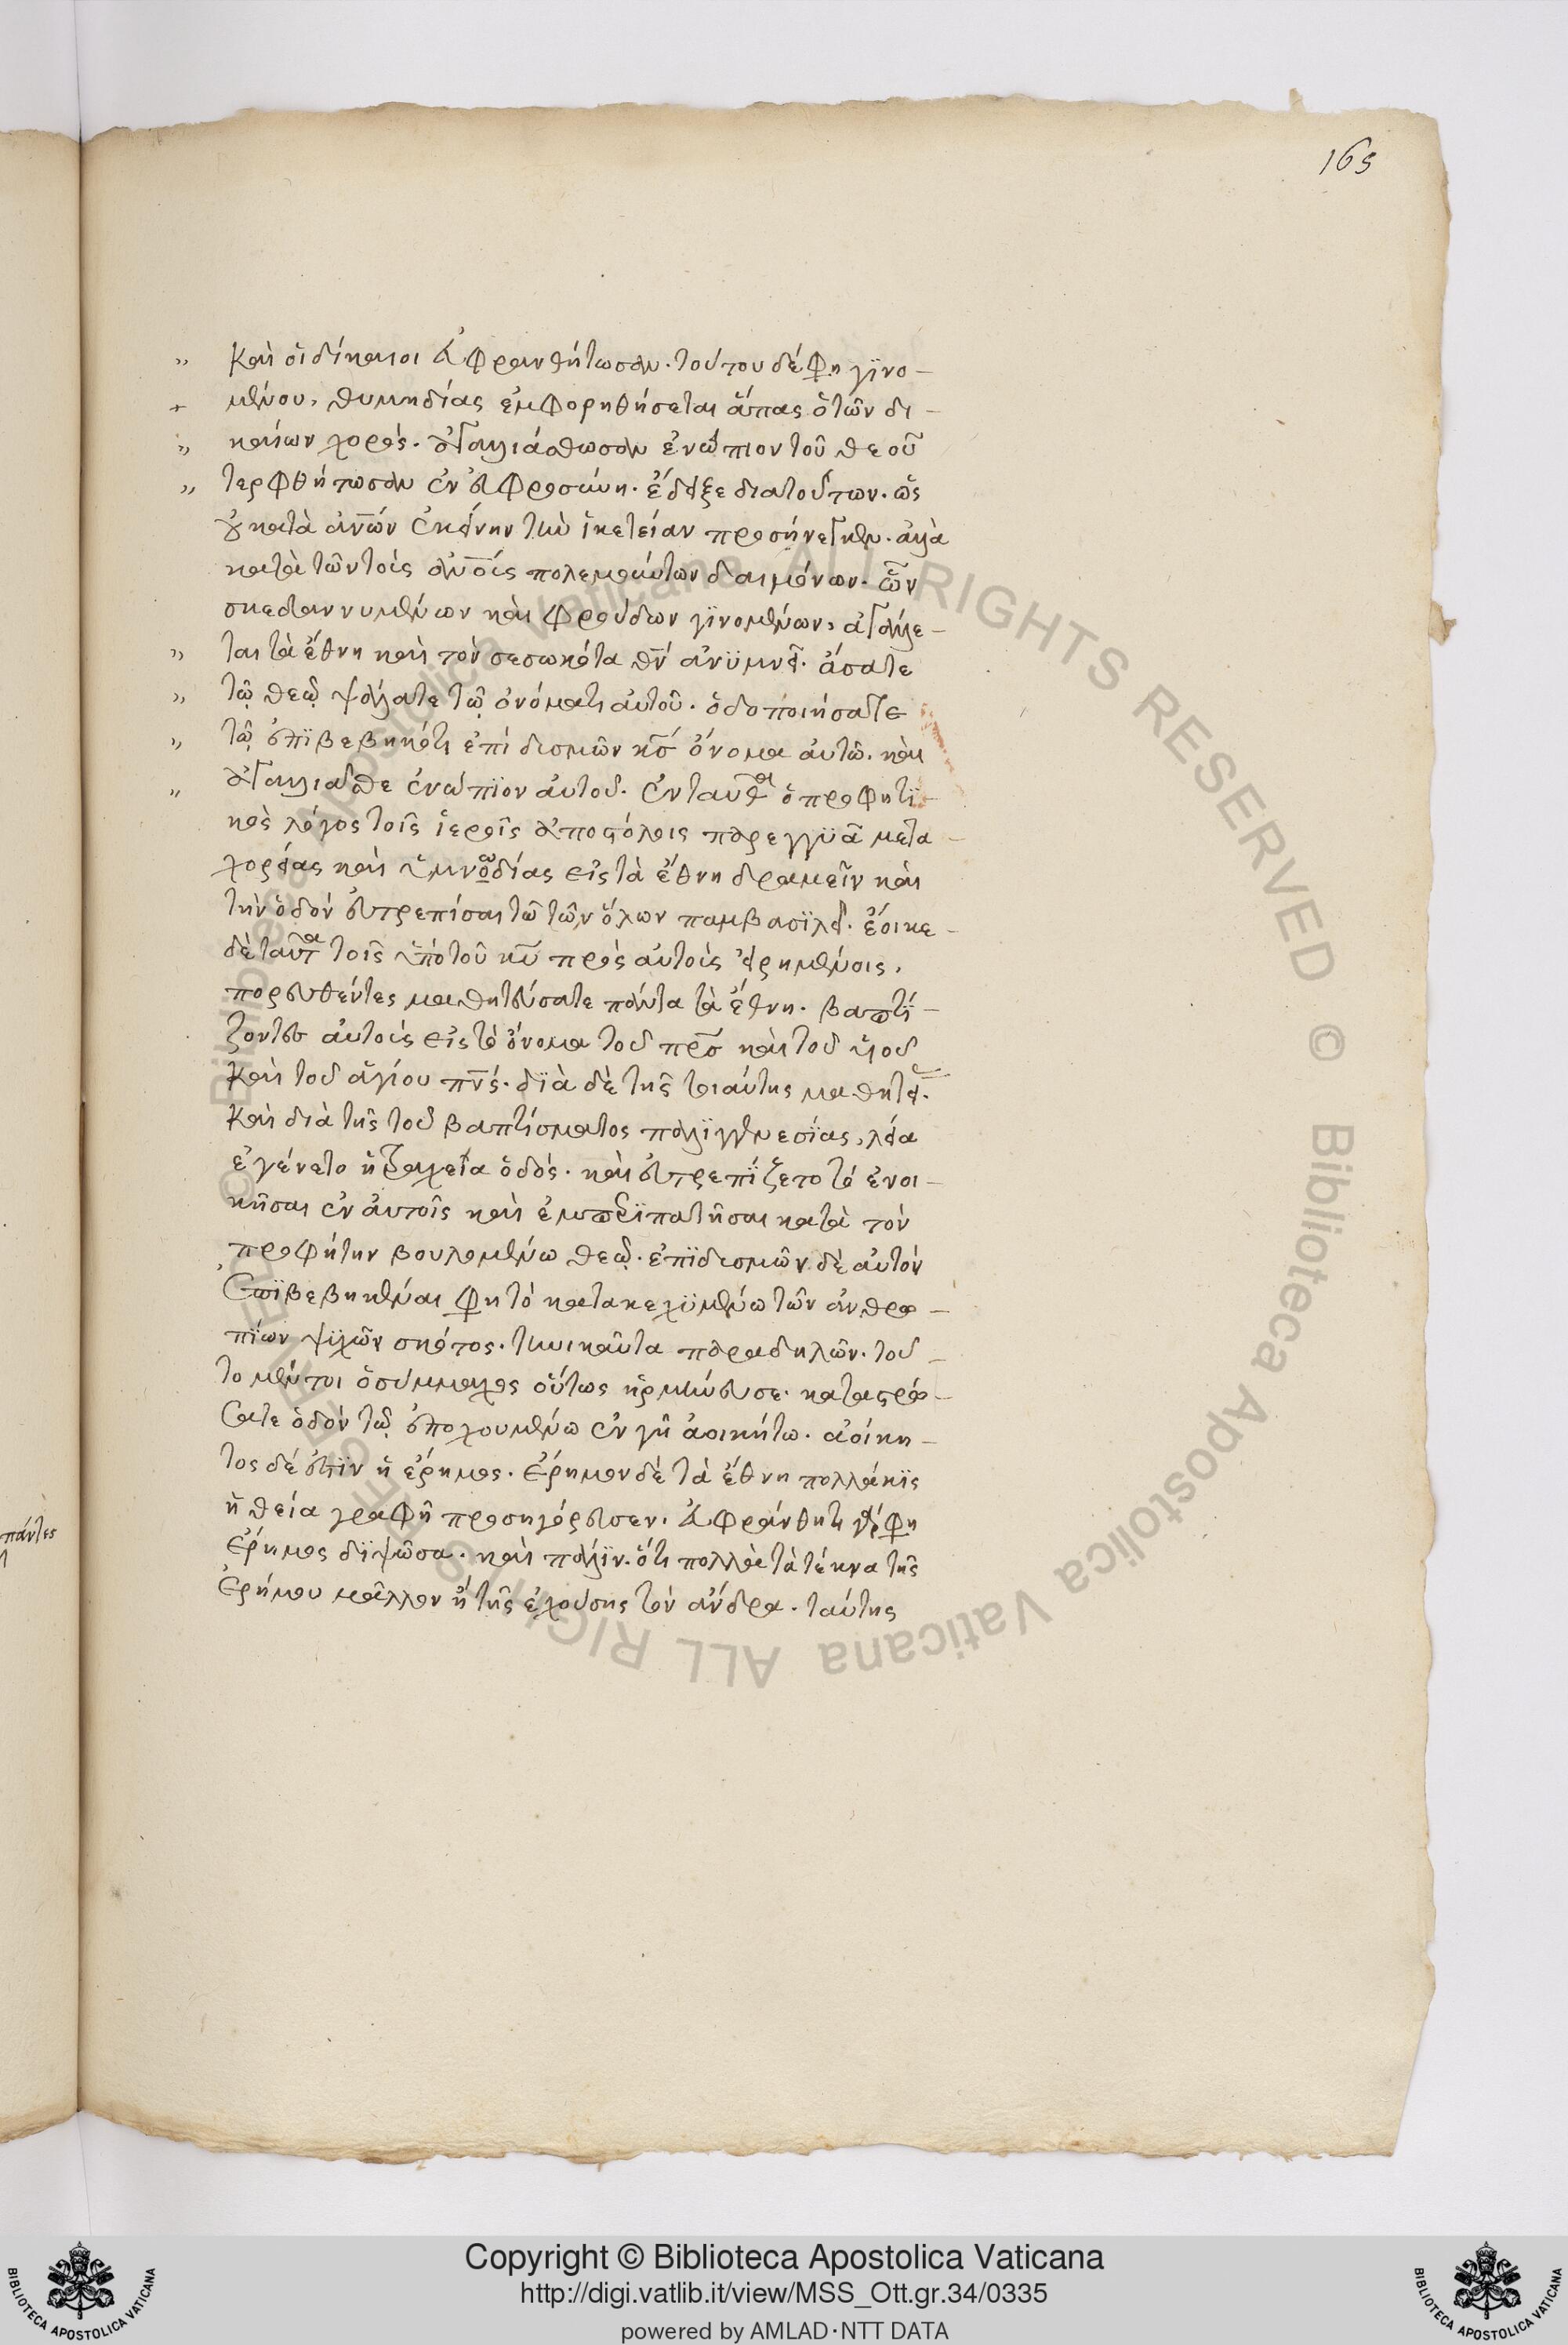 165
„ καὶ οἱ δίκαιοι εὐφρανθήτωσαν. τούτου δέ φη γϊνο-
μένου, θυμηδίας ἐμφορηθήσεται ἅπας ὁ τῶν δι-
„ καίων χορός. ἀγαλλιάσθωσαν ἐνώπιον τοῦ θεοῦ
„ τερφθήτωσαν ἐν εὐφροσύνη. ἔδειξε διατούτων. ὡς
οὐ κατὰ ἀνῶν ἐκείνην τὴν ἱκετείαν προσήνεγκεν. ἀλλὰ
κατὰ τῶν τοὶς ἀνοίς πολεμούντων δαιμόνων. ὧν
σκεδαννυμένων καὶ φρούδων γϊνομένων, ἀγάλλε-
„ ται τὰ ἔθνη καὶ τὸν σεσωκότα θν ἀνϋμνεῖ. ἄσατε
„ τῶ θεῶ ψάλατε τῶ ὀνόματι αὐτοῦ. ὁδοποιήσατε
„ τῶ ἐπϊβεβηκότι ἐπὶ δυσμῶν κσ ὄνομα αὐτῶ. καὶ
„ ἀγαλλιᾶσθε ἐνώπϊον αὐτοῦ. ἐνταῦθα ὁ προφητϊ-
κὸς λόγος τοῖς ἱεροῖς ἀποστόλοις παρεγγϋᾶ μετα-
χορείας καὶ ὑμνωδίας εἰς τὰ ἔθνη δραμεῖν καὶ
τὴν ὁδὸν εὐτρεπίσαι τῶ τῶν ὅλων παμβασϊλεῖ. ἔοικε-
δὲ ταῦτα τοῖς ὑπὸ τοῦ κυ πρὸς αὐτοὶς εἰρημένοις,
πορευθέντες μαθητεύσατε πάντα τὰ ἔθνη. βαπτΐ-
ζοντες αὐτοὶς εἰς τὸ ὄνομα τοῦ πρσ καὶ τοῦ ὑιοῦ
καὶ τοῦ ἁγίου πνς. δϊὰ δὲ τῆς τοιαύτης μαθητεί.
καὶ διὰ τῆς τοῦ βαπτίσματος παλϊγγενεσίας, λεία
ἐγένετο ἡ τραχεῖα ὁδός. καὶ εὐτρεπΐζετο τὸ ἐνοι-
κῆσαι ἐν αὐτοῖς καὶ ἐμπερϊπατῆσαι κατὰ τὸν
προφήτην βουλομένω θεῶ. ἐπϊδυσμῶν δὲ αὐτὸν
ἐπϊβεβηκέναι φη τὸ κατακεχϋμένω τῶν ἀνθρω-
πΐων ψϋχῶν σκότος. τηνικαῦτα παραδηλῶν. τοῦ-
το μέντοι ὁ σύμμαχος οὕτως ἡρμήνευσε. καταστρώ-
σατε ὁδὸν τῶ ἐποχουμένω ἐν γῆ ἀοικήτω. ἀοίκη-
τος δέ ἐστϊν ἡ ἔρημος. ἔρημον δὲ τὰ ἔθνη πολλάκϊς
ἡ θεία γραφὴ προσηγόρευσεν. εὐφράνθητι γάρ φη
ἔρημος δϊψῶσα. καὶ πάλϊν. ὅτι πολλὰ τὰ τέκνα τῆς
ἐρήμου μᾶλλον ἢ τῆς ἐχούσης τὸν ἄνδρα. ταύτης
πάντες
© Biblioteca Apostolica Vaticana ALL RIGHTS RESERVED
© Biblioteca Apostolica Vaticana ALL RIGHTS RESERVED
Copyright © Biblioteca Apostolica Vaticana
http://digi.vatlib.it/view/MSS_Ott.gr.34/0335
powered by AMLAD·NTT DATA
BIBLIOTECA APOSTOLICA VATICANA
BIBLIOTECA APOSTOLICA VATICANA